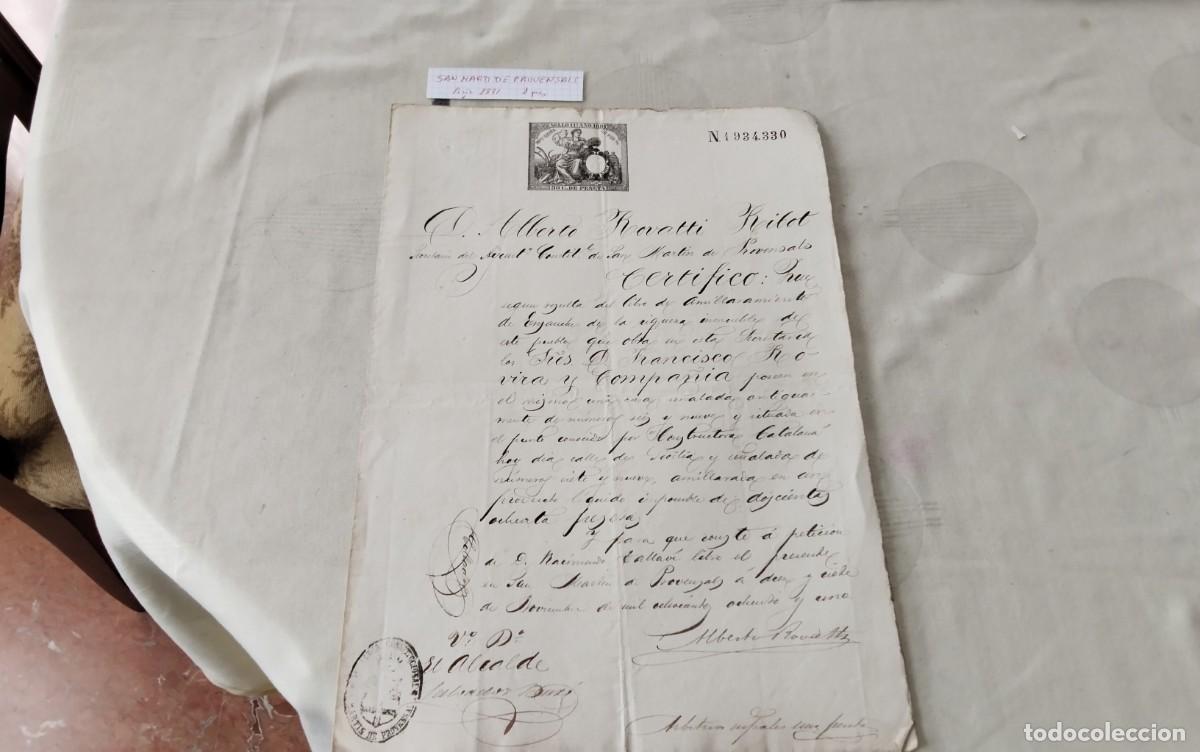 SAN MARTI DE PROVENSALS
1881
SELLO 11º AÑO 1881
50 Cs. DE PESETA
N.1934.330
D. Alberto Rovatti
Secretario del Ayunt.º Constit.l de San Martin de Provensals
Certifico: Que
segun resulta del libro de amillaramiento
de Ensanche de la riqueza inmueble de
este pueblo que obra en esta Secretaria
los Sres. D. Francisco Ro-
vira y Compañia poseen en
el mismo una casa señalada antigua-
mente de números seis y nueve y situada en
el punto conocido por Constructora Catalana
hoy dia calle de Sicilia y señalada de
números siete y nueve, amillarada en un
producto líquido imponible de doscientas
ochenta pesetas
Y para que conste á peticion
de D. Raimundo libro el presente
en San Martin de Provensals á diez y siete
de Noviembre de mil ochocientos ochenta y uno
Vº Bº
Alberto Rovatti
El Alcalde
CONSTITUCIONAL
MARTIN DE PROVENSALS
todocoleccion